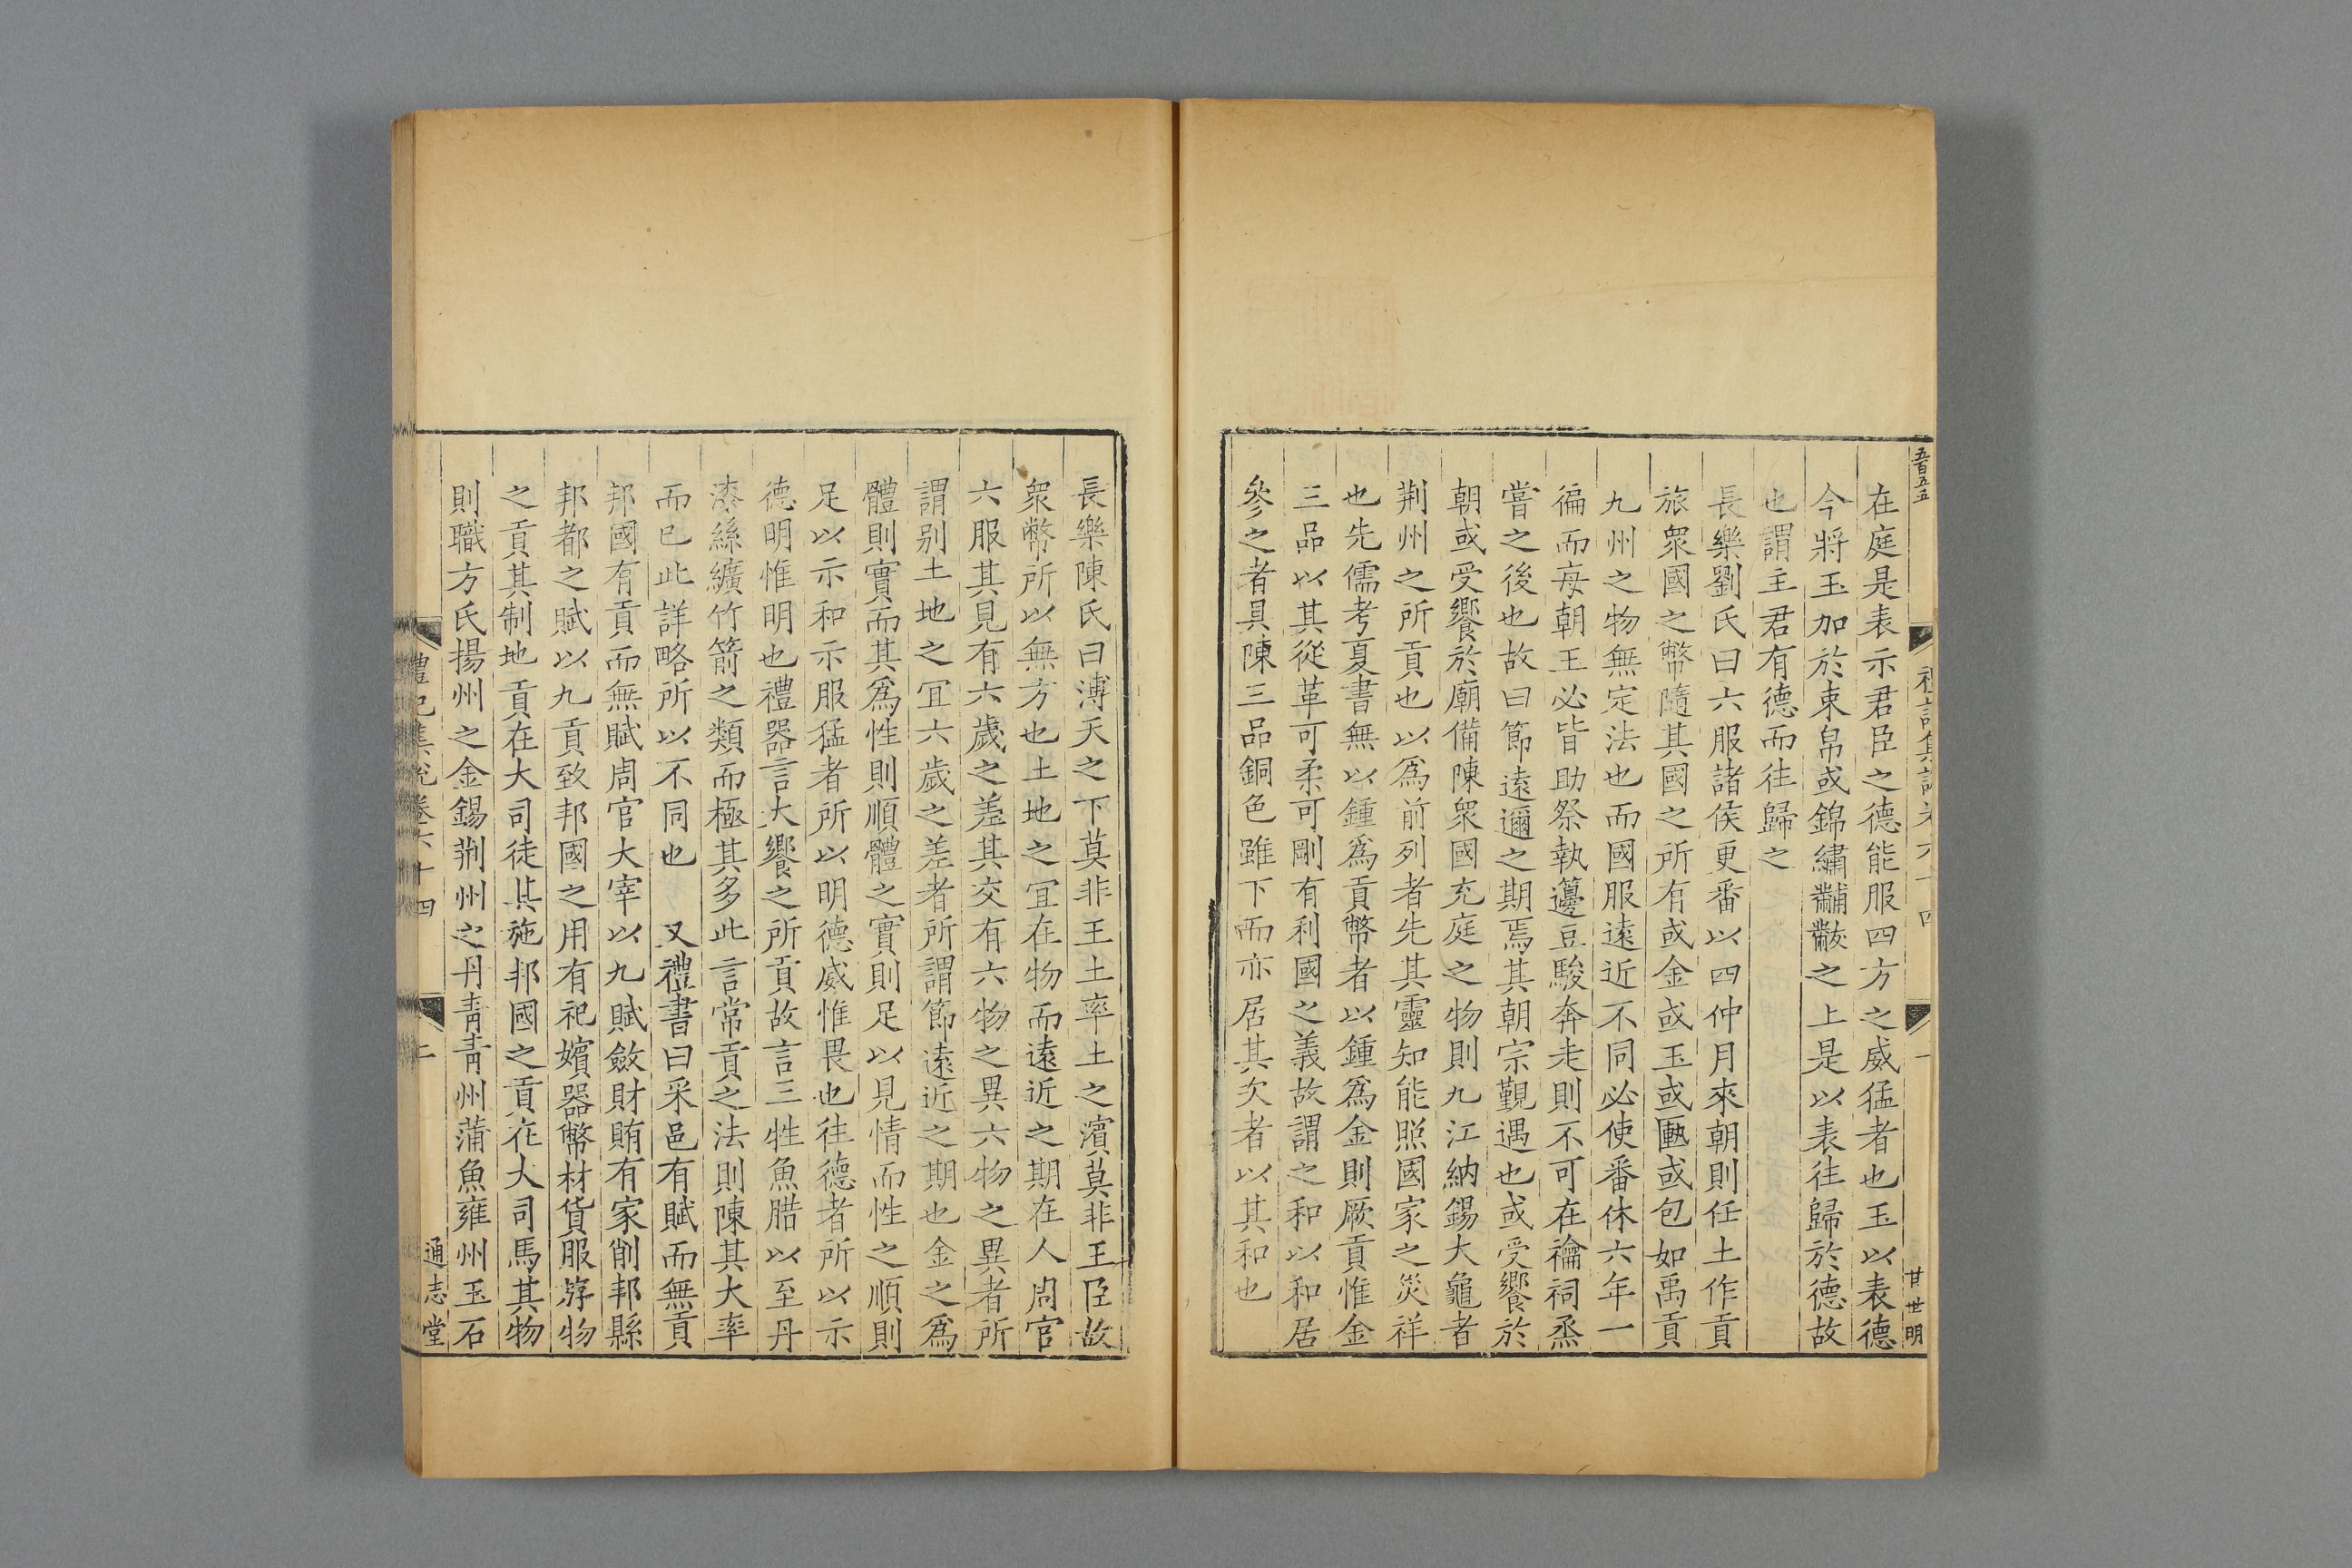 五百五五
禮記集說卷六十四
一
甘世明
在庭是表示君臣之德能服四方之威猛者也玉以表德
今將玉加於束帛或錦繡黼黻之上是以表往歸於德故
也謂主君有德而往歸之
長樂劉氏曰六服諸侯更番以四仲月來朝則任土作貢
旅衆國之幣隨其國之所有或金或玉或匭或包如禹貢
九州之物無定法也而國服遠近不同必使番休六年一
徧而每朝王必皆助祭執籩豆駿奔走則不可在禴祠烝
嘗之後也故曰節遠邇之期焉其朝宗覲遇也或受饗於
朝或受饗於廟備陳衆國充庭之物則九江納錫大龜者
荆州之所貢也以爲前列者先其靈知能照國家之災祥
也先儒考夏書無以鍾爲貢幣者以鍾爲金則厥貢惟金
三品以其從革可柔可剛有利國之義故謂之和以和居
參之者具陳三品銅色雖下而亦居其次者以其和也
長樂陳氏曰溥天之下莫非王土率土之濱莫非王臣故
衆幣所以無方也土地之宜在物而遠近之期在人周官
六服其見有六歲之差其交有六物之異六物之異者所
謂别土地之宜六歲之差者所謂節遠近之期也金之爲
體則實而其爲性則順體之實則足以見情而性之順則
足以示和示服猛者所以明德威惟畏也往德者所以示
德明惟明也禮器言大饗之所貢故言三牲魚腊以至丹
漆絲纊竹箭之類而極其多此言常貢之法則陳其大率
而已此詳略所以不同也　又禮書曰采邑有賦而無貢
邦國有貢而無賦周官大宰以九賦斂財賄有家削邦縣
邦都之賦以九貢致邦國之用有祀嬪器幣材貨服斿物
之貢其制地貢在大司徒其施邦國之貢在大司馬其物
則職方氏揚州之金錫荆州之丹青青州蒲魚雍州玉石
禮記集說卷六十四
二
通志堂